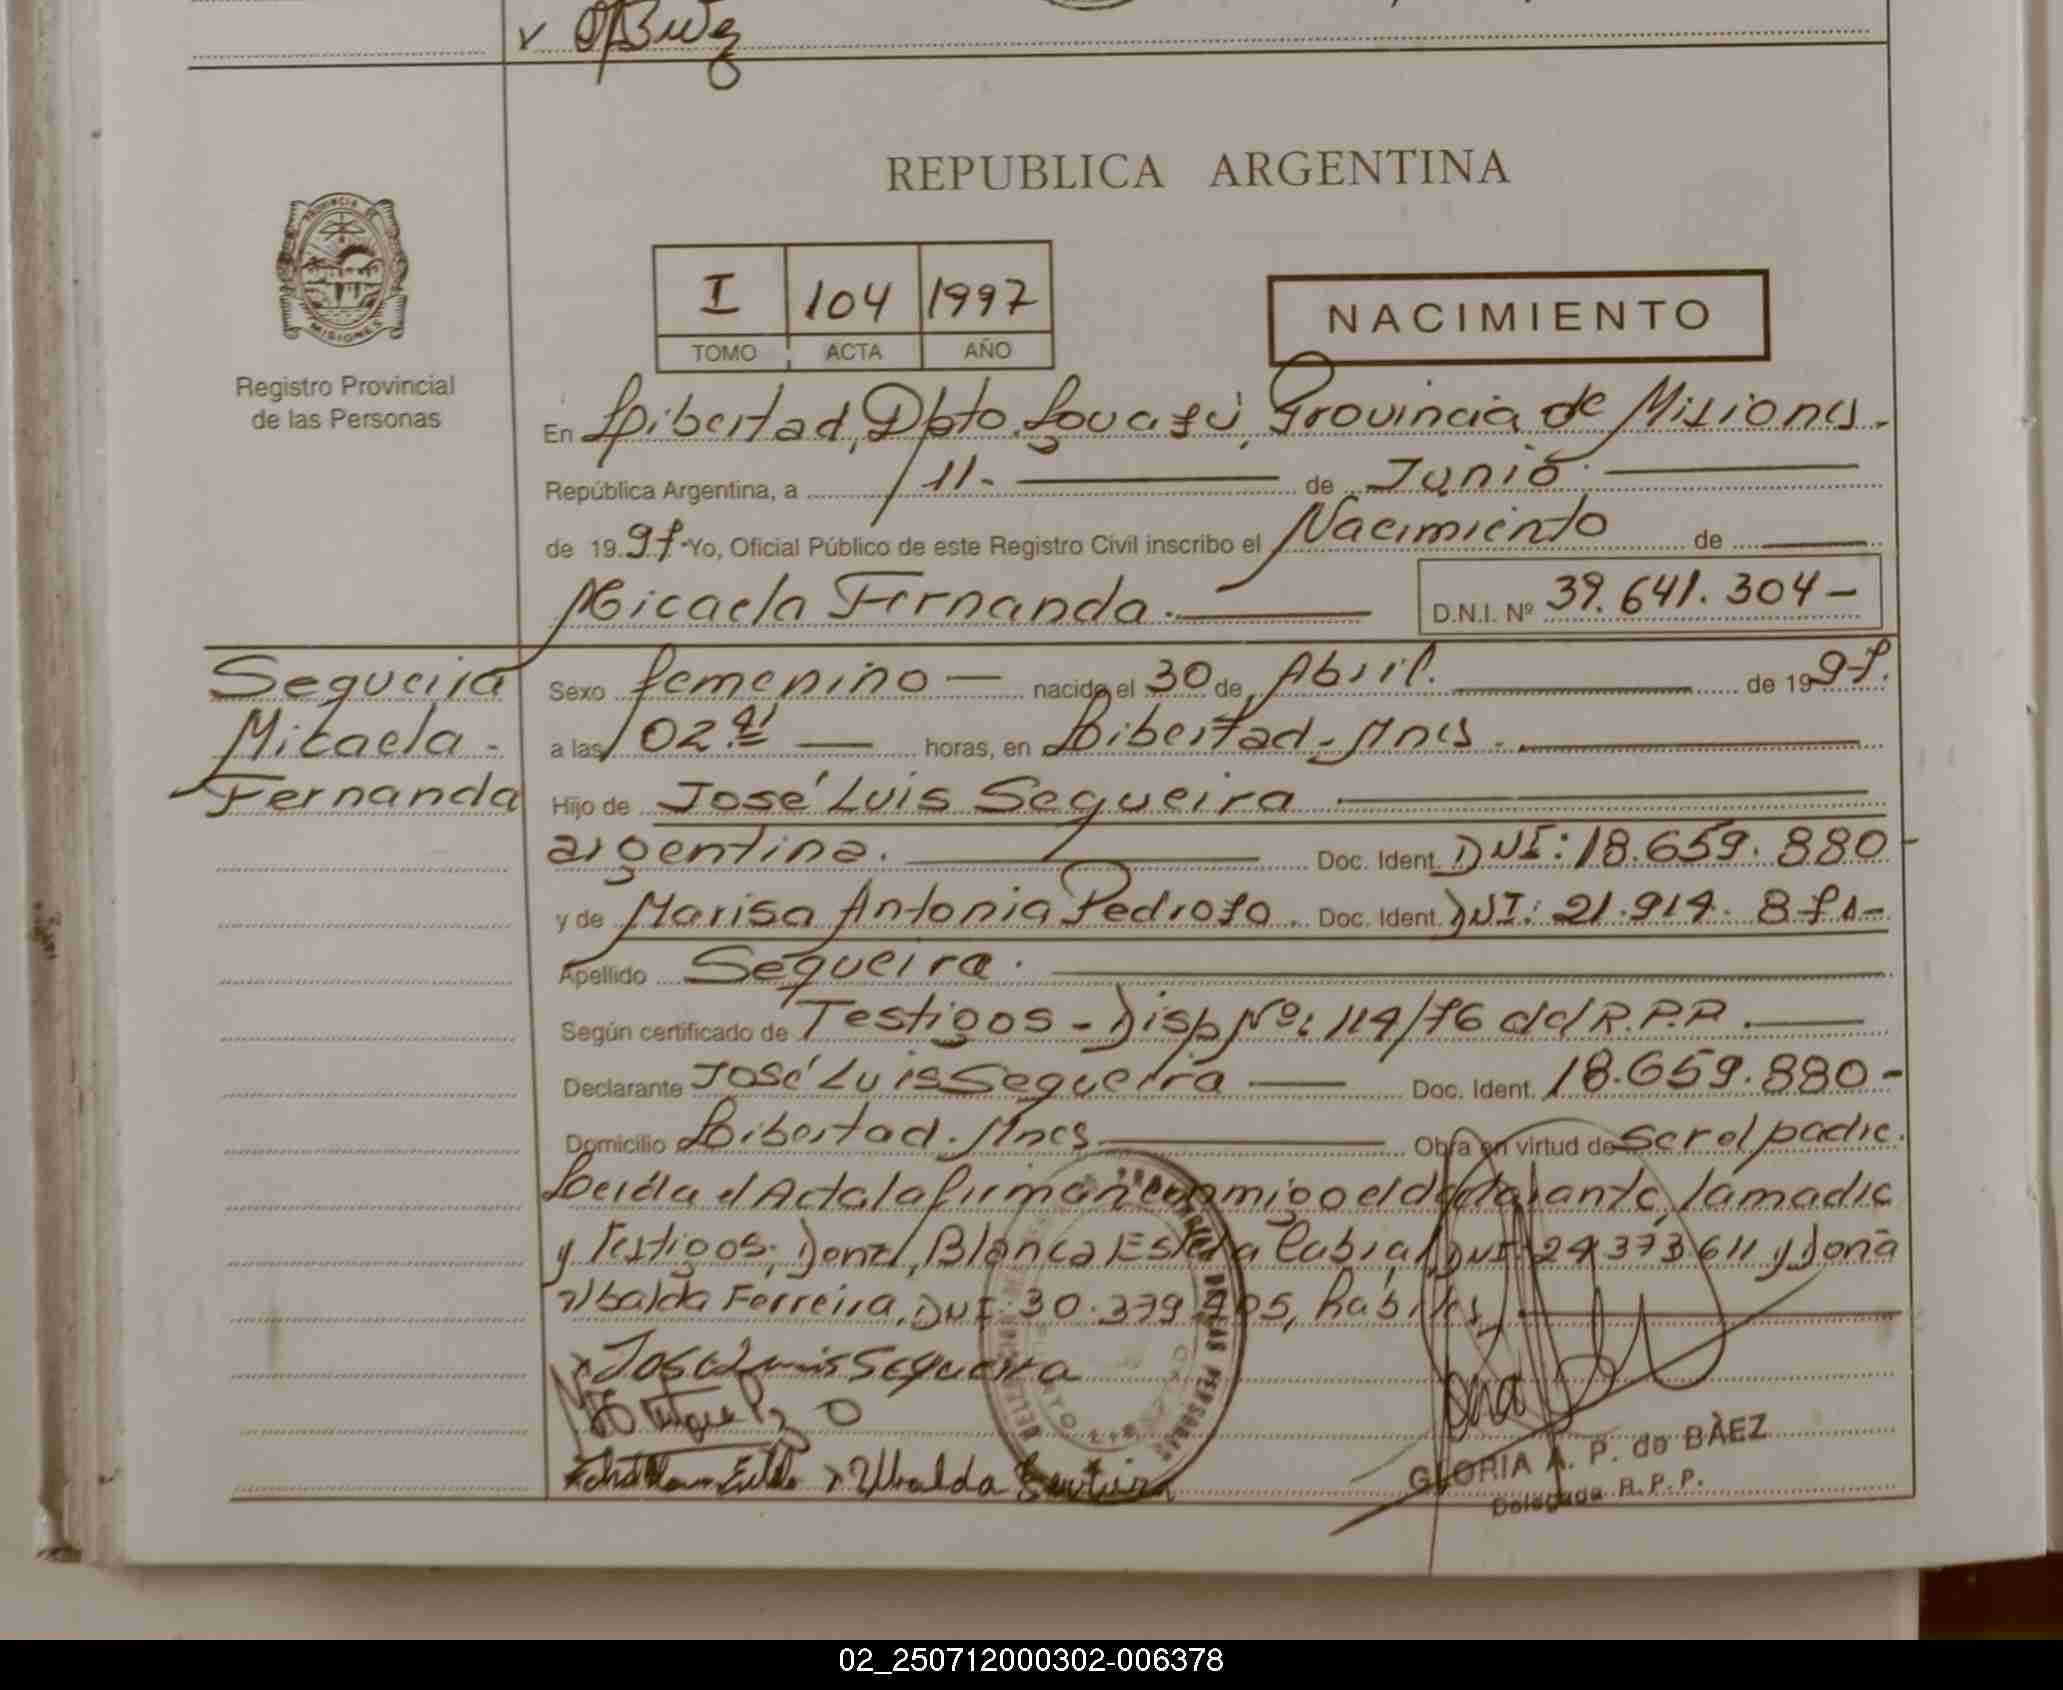 REPUBLICA ARGENTINA
PROVINCIA DE
MISIONES
Registro Provincial
de las Personas
I 104 1997
TOMO ACTA AÑO
NACIMIENTO
En Libertad, Dpto. Iguazú, Provincia de Misiones.
República Argentina, a 11. de Junio
de 1997 Yo, Oficial Público de este Registro Civil inscribo el Nacimiento de
Micaela Fernanda. D.N.I. Nº 39.641.304-
Sequeira
Micaela -
Fernanda
Sexo femenino - nacido el 30 de Abril. de 1997.
a las 02 horas, en Libertad - Mnes
Hijo de José Luis Sequeira
argentina. Doc. Ident. DNI: 18.659.880-
y de Marisa Antonia Pedrozo. Doc. Ident. DNI: 21.914.
Apellido Sequeira.
Según certificado de Testigos - Disp Nº: 114/76 del R.P.P.
Declarante José Luis Sequeira Doc. Ident. 18.659.880-
Domicilio Libertad. Mnes Obra en virtud de ser el padre.
Leida el Acta la firman conmigo el declarante, la madre
y Testigos: Blanca Estela Cabral, DNI 24.373.611 y Doña
Ubalda Ferreira, DNI: 30.379. hábiles
José Luis Sequeira
Ubalda
GLORIA A. P. de BÁEZ
Delegada R. P. P.
02_250712000302-006378